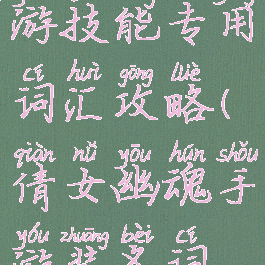 游技能专用
cí huì gōng lüè
词汇攻略(
qiàn nǚ yōu hún shǒu
倩女幽魂手
yóu zhuāng bèi cí
游装备词